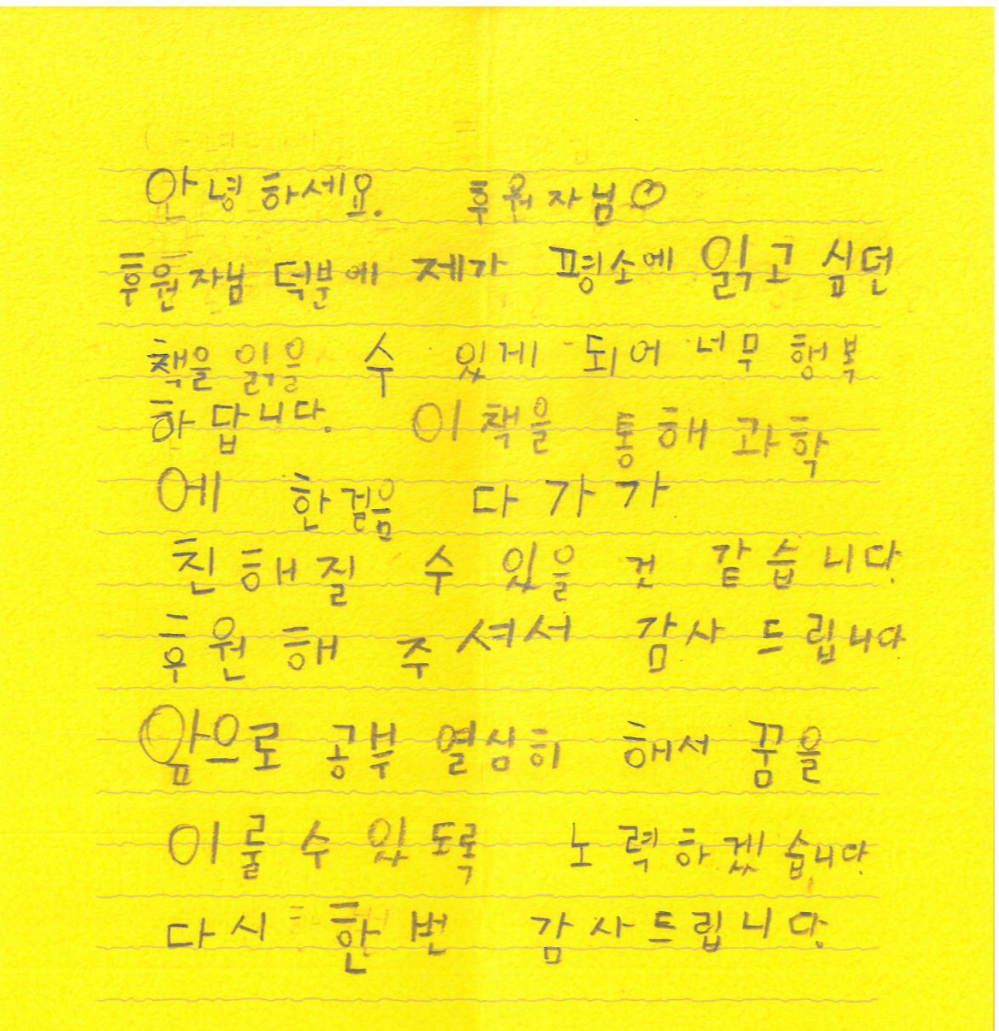 안녕하세요. 후원자님
후원자님 덕분에 제가 평소에 읽고 싶던
책을 읽을 수 있게 되어 너무 행복
하답니다. 이 책을 통해 과학
에 한걸음 다가가
친해질 수 있을 것 같습니다.
후원해 주셔서 감사드립니다
앞으로 공부 열심히 해서 꿈을
이룰 수 있도록 노력하겠습니다
다시 한번 감사드립니다.